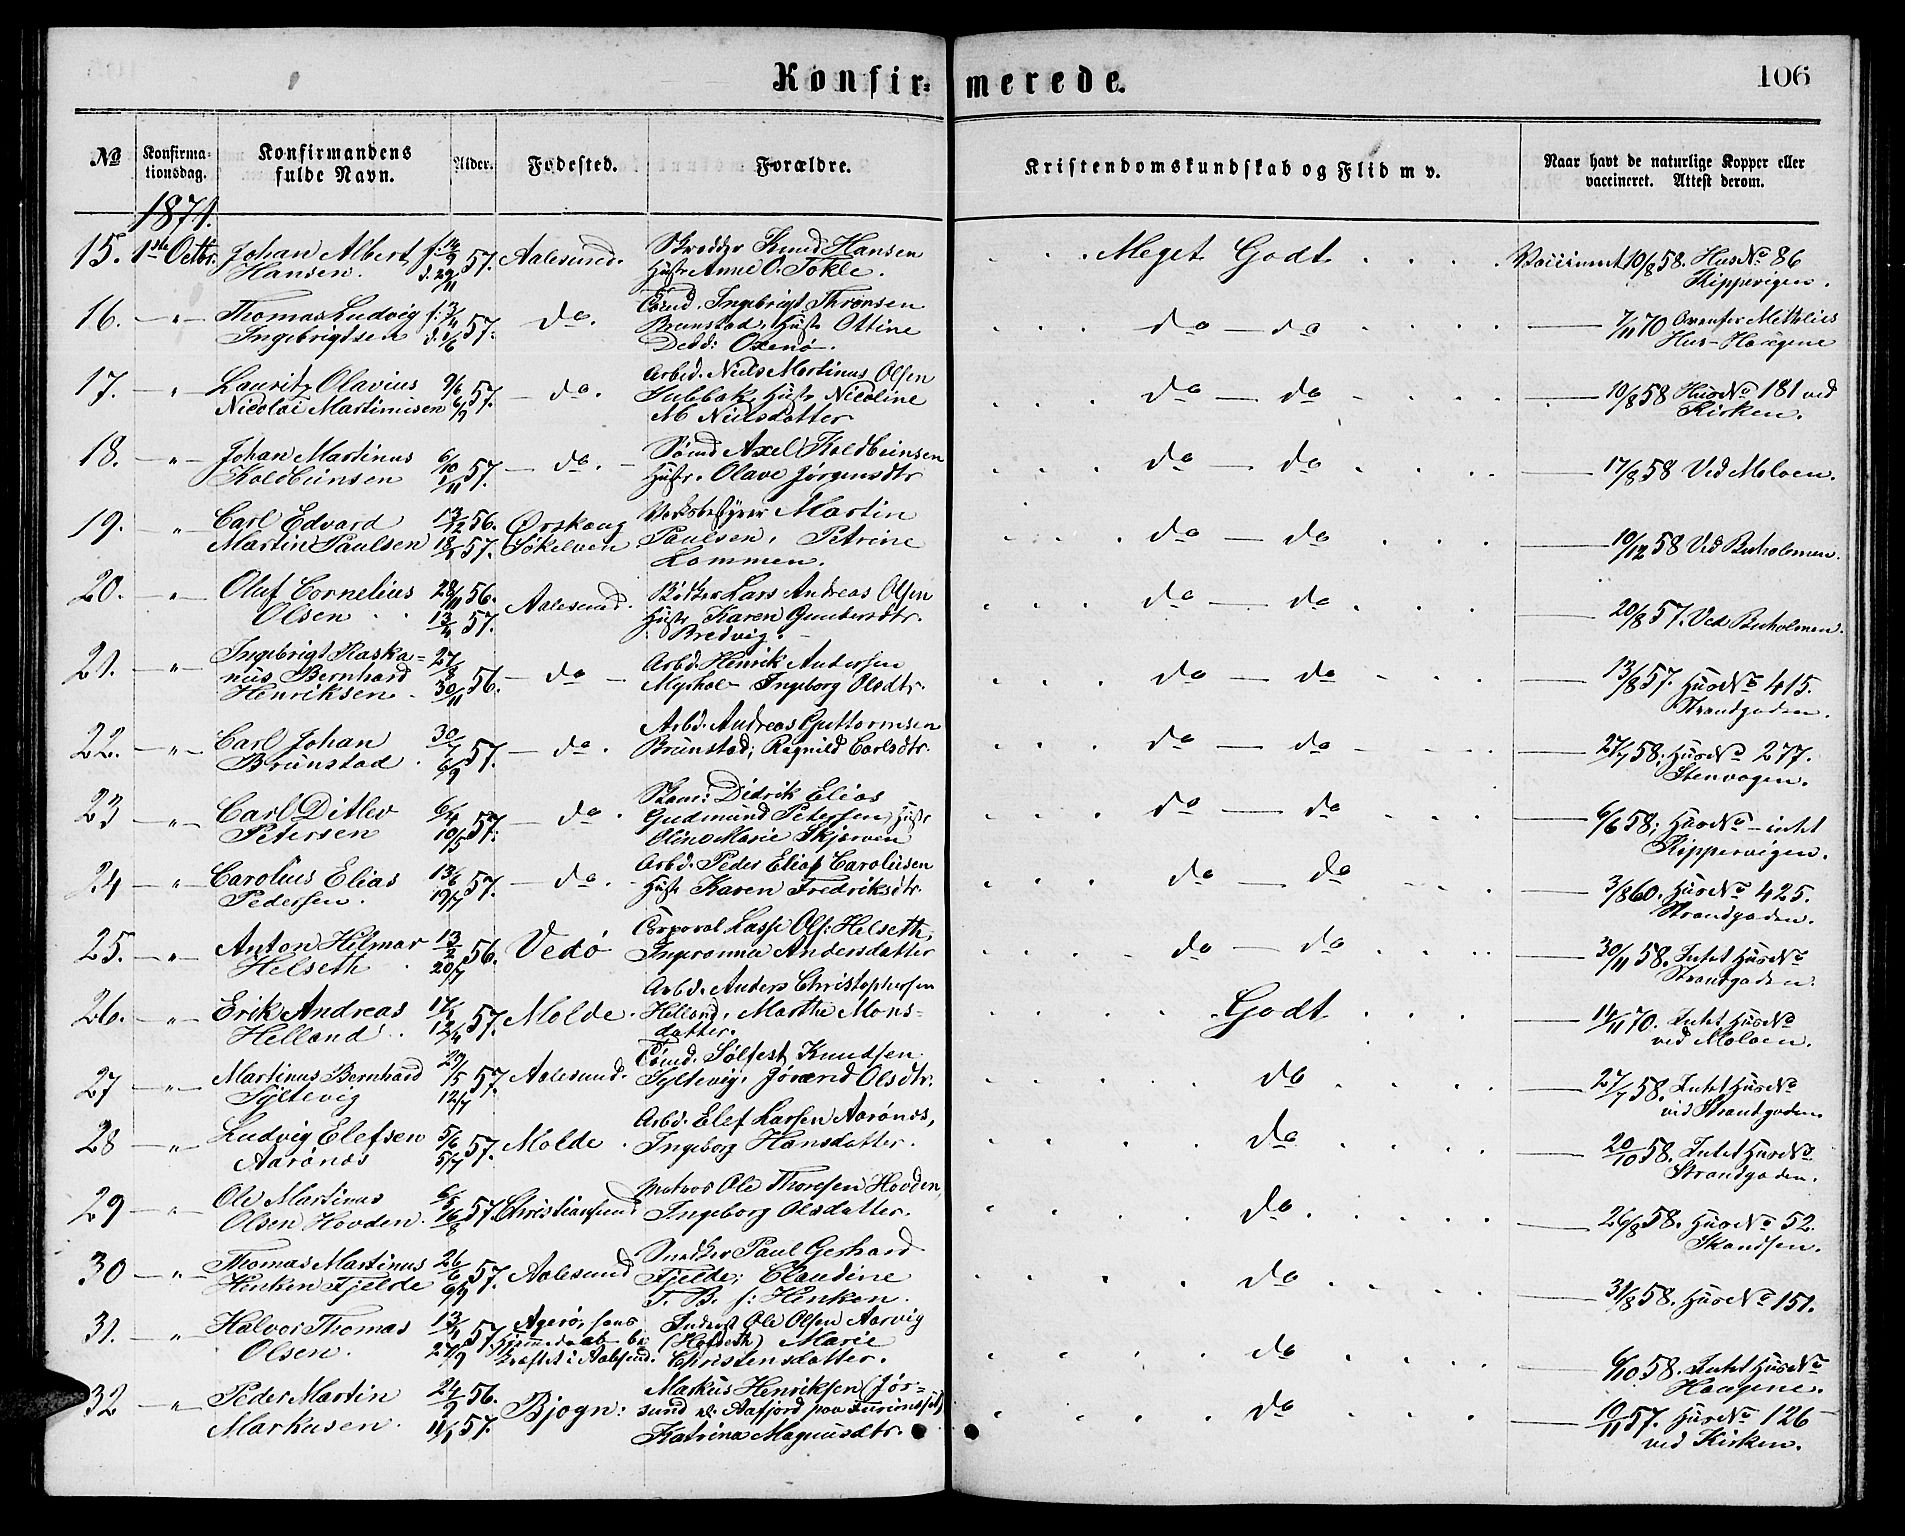 Konfirmerede. 106
No Konfirmationsdag. Konfirmandens fulde Navn. Alder. Fødested. Forældre. Kristendomskundskab og Flid m v. Naar havt de naturlige Kopper eller vaccineret. Attest derom.
1871.
15. 1ste Octbr. Johan Albert f. 57. Aalesund. Knud Hansen . . . Meget Godt . . . . Vaccineret 10/8 58. Hus No 86
Hansen. d. Hustr Anne O. Tokle. Kippervigen.
16. — " — Thomas Ludvig f: 57. do. Ingebrigt Thronsen . . . do — do . . . . — 7/11 70
Ingebrigtsen d. Brunstad, Hustr Ottine Hus - Haugene
Oxenø.
17. — " Lauritz Olavius 9/6 57. — do. Arbd. Niels Martinus Olsen . . . do — do - . . . — 10/8 58 Hus No 181 ved
Nicolai Martinusen 6/9 Hustr Nicoline Kirken.
M Nielsdatter
18. — " — Johan Martinus 6/10 57. — do. — Axel Koldbeinsen . . . do — do . . . . — 17/8 58 Ved Moloen.
Koldbeinsen 1/11 Hustr. Olave Jørgensdtr
19. — " Carl Edvard 13/12 56. Ørskoug Martin . . . do — do . . . . — 10/12 58 Ved Buholmen.
Martin Paulsen 57. Søkelven Paulsen, Petrine
Lammen.
20. — " — Oluf Cornelius 28/11 56. Aalesund. Bødker Lars Andreas Olsen . . . do — do . . . — 20/8 57. Ved Buholmen.
Olsen 13/4 57. Hustr Karen
Bredvig.
21. — " Ingebrigt Raska= 27/8 56. — do — Arbd. Henrik Andersen . . . do — do - . . — 13/8 57. Hus No 415.
nius Bernhard 30/11 Myrhol - Ingeborg Olsdtr. Strandgaden.
Henriksen.
22. — " — Carl Johan 30/7 57. — do. Arbd. Andreas Guttormsen . . . do — do - . . . — 27/7 58; Hus No 277.
Brunstad. 6/9 Brunstad; Ragnild Carlsdtr. Stenvagen.
23 — " — Carl Ditlev 6/4 57. — do. Didrik Elias . . . do — do . . . — 6/6 58; Hus No - intet
Petersen 10/5 Gudmund Petersen, Hustr Kippervigen.
Oline Marie Skjerven
24 — " — Carolius Elias 13/6 57. — do. — Arbd. Peder Elias Caroliusen . . . do — do . . . — 3/8 60. Hus No 425.
Pedersen. 19/7 Hustr Karen Fredriksdtr. Strandgaden.
25. — " — Anton Hilmar 13/2 56. Vedø Corporal Lasse Ols: Helseth, . . . do — do . . . . — 30/11 58. Intet Hus No
Helseth 20/7 Andersdatter Strandgaden.
26. — " — Erik Andreas 57. Molde. Arbd. Anders Christophersen . . . . Godt . . . — 14/11 70. Intet Hus No
Helland. 12/4 Helland, Marthe Mons= ved Moloen.
datter.
27 — " — Martinus Bernhard 57. Aalesund. Sølfest Knudsen . . . . . do . . . . — 27/7 58. Intet Hus No
Syltevig 12/7 Syltevig, Olsdtr. ved Strandgaden.
28 " — Ludvig Elefsen 5/6 57. Molde. Arbd. Elef Larsen Aarønes, . . . . . do . . . . — 20/10 58. Intet Hus No
Aarønes 5/7 Ingeborg Hansdatter. Strandgaden.
29 — " — Ole Martinus 6/5 57. Christiansund Matros Ole Thoresen Hovden, . . . . . do . . . . — 26/8 58. Hus No 52.
Olsen Hovden. 16/8 Ingeborg Olsdatter. Skandsen.
30 — " — Thomas Martinus 26/6 57. Aalesund Snedker Paul Gerhard . . . . . do . . . . — 31/8 58. Hus No 151.
Henken Fjelde 6/9 Fjelde; Claudine
T. B. f: Henken.
31. — " Halvor Thomas 13/4 57. Agerø, Ole Olsen Aarvig . . . . . do . . . . — 6/10 58. Intet Hus No
Olsen. 27/9 Hjemmedaab be (Hofseth) Marie Haugene.
kræftet i Aalesund. Christensdatter.
32 " — Peder Martin 24/9 56. Bjogn: Markus Henriksen (Jør= . . . . . do . . . . — 10/11 57. Hus No 126 -
Markusen. 57. sund Aafjord paa ved Kirken.
Katrina Magnusdtr.